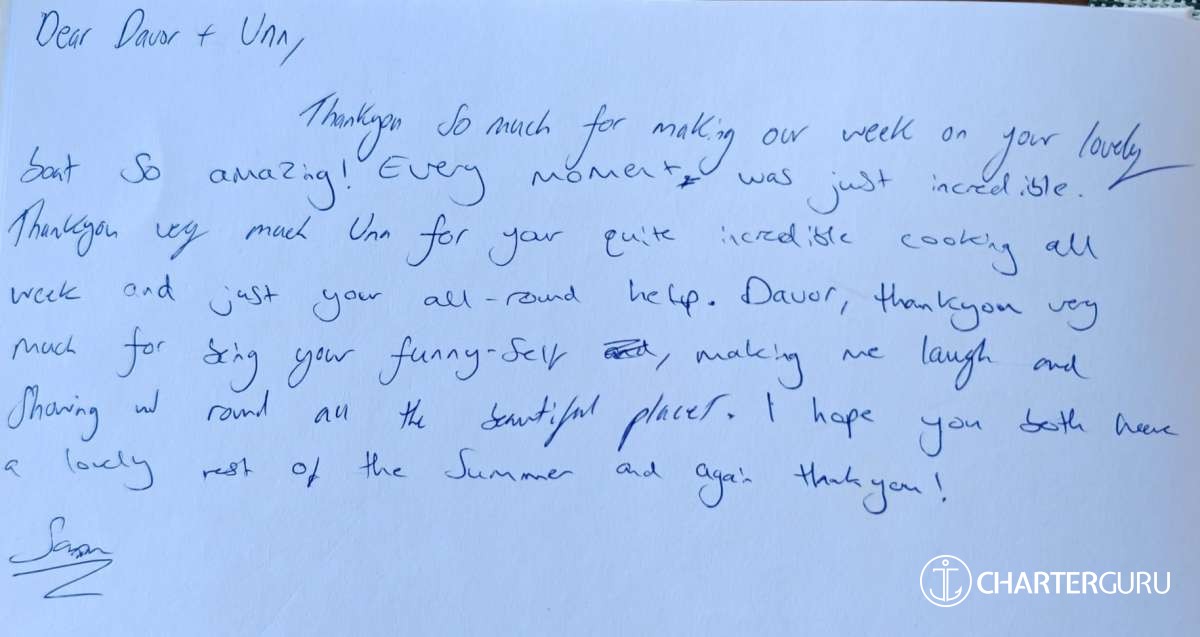 Dear Davor + Unn,
Thankyou so much for making our week on your lovely
boat so amazing! Every moment was just incredible.
Thankyou very much Unn for your quite incredible cooking all
week and just your all-round help. Davor, thankyou very
much for being your funny-self, making me laugh and
Showing us round all the beautiful places. I hope you both have
a lovely rest of the Summer and again thankyou!
CHARTERGURU